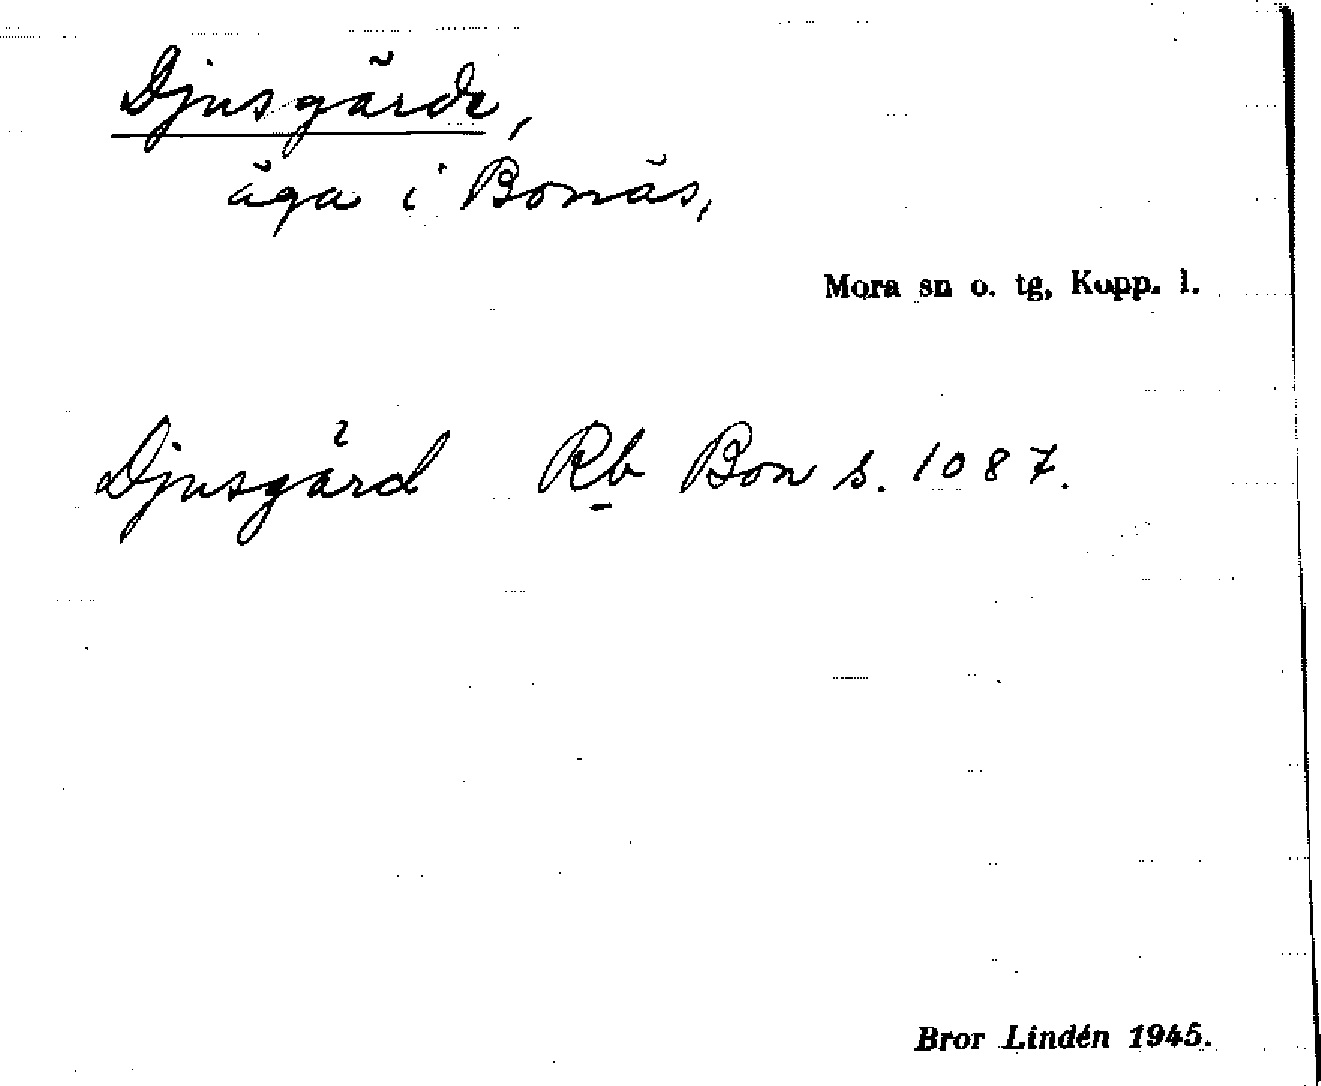 Djusgärde,
äga i Bonäs,
Mora sn o. tg, Kopp. l.
Djusgärd Rb Bon s. 1087.
Bror Lindén 1945.